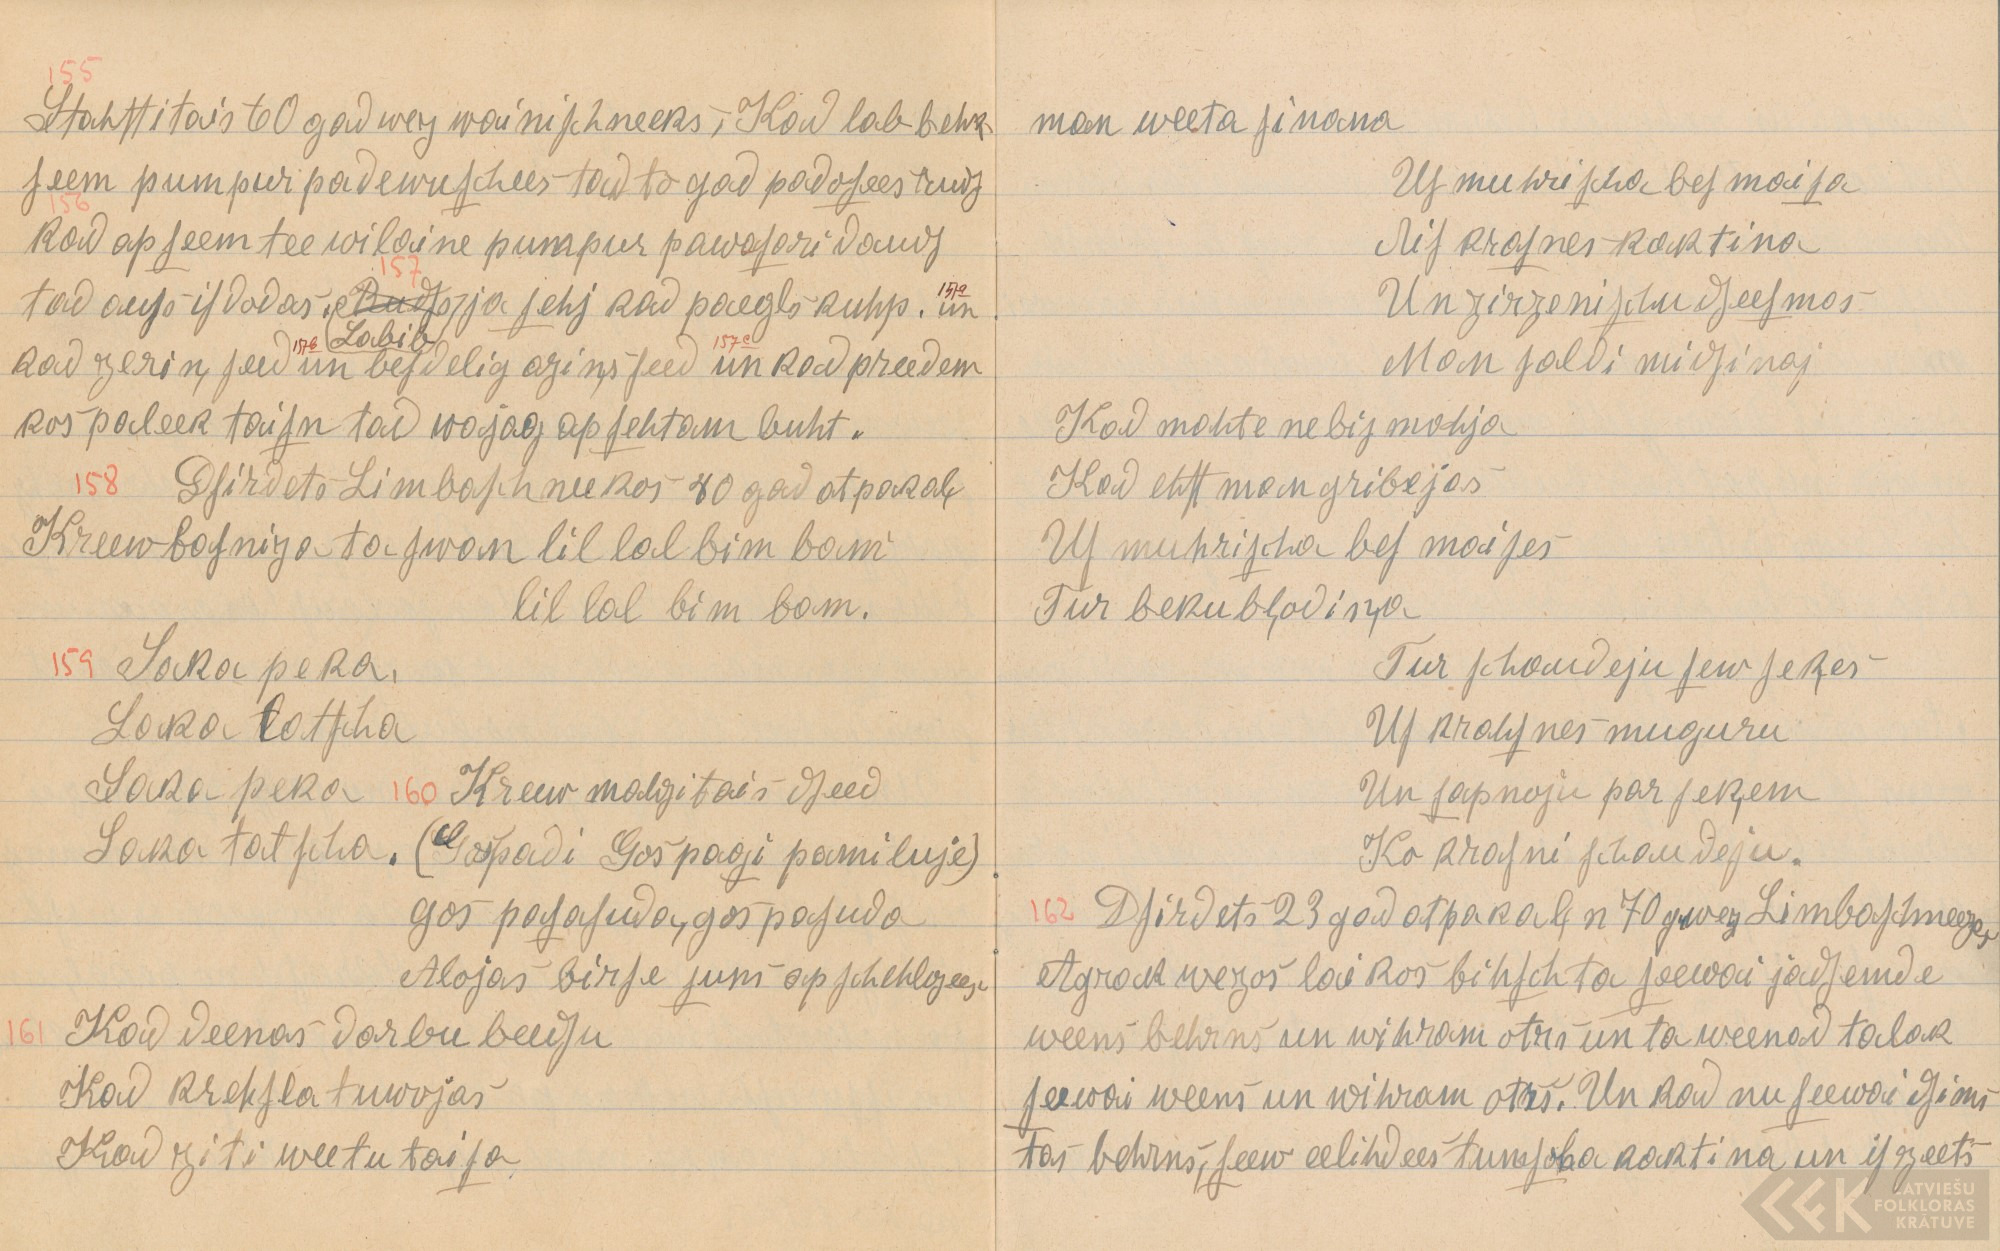 155
Stahstitais 60 gad wez wainischneeks, Kad lab behr
seem pumpur padewuschees tad to gad padosees rudz
156
Kad ap seem tee wilaine pumpur pawasari daudz
157
tad aus isdodas. ja sehj kad paegls kuhp. 157a un
Labib
kad zerin seed 157b un besdelig azins seed 157c un kad preedem
kos paleek taisn tad wajag apsehtam buht.
158 Dsirdets Limbaschneekos 80 gad atpakaļ
Kreewbasniza ta swan lil lal bim bam
lil lal bim bam.
159 Saka peka,
Saka tatscha
Saka peka
Saka tatscha.
160 Kreew mahzitais dseed
(Gospadi Gospagi pamiluje)
gos pasasuda, gos pasuda
Alojas birse juns apschehlozees
161 Kad deenas darbu beidsu
Kad krehsla tuwojas
Kad ziti weetu taisa
man weeta sinama
Us muhrischa bes maisa
Ais krasnes kaktina
Un zirzenischu dseesmas
Man saldi midsinaj
Kad mahte nebij mahja
Kad ehst man gribejas
Us muhrischa bes maises
Tur beku bļodiņa
Tur schaudeju sew seķes
Us krahsnes muguru
Un sapnoju par seķem
Ko krasni schaudeju.
162 Dsirdets 23 gad atpakaļ n 70 g wez Limbaschneezes
Agrak wezos laikos bihsch ta seewai jadsemde
weens behrns un wihram otrs un ta weenad talak
seewai weens un wihram otrs. Un kad nu seewai dsims
tas behrns, seew eelihdees tumscha kaktina un isgeets
LATVIEŠU
FOLKLORAS
KRĀTUVE